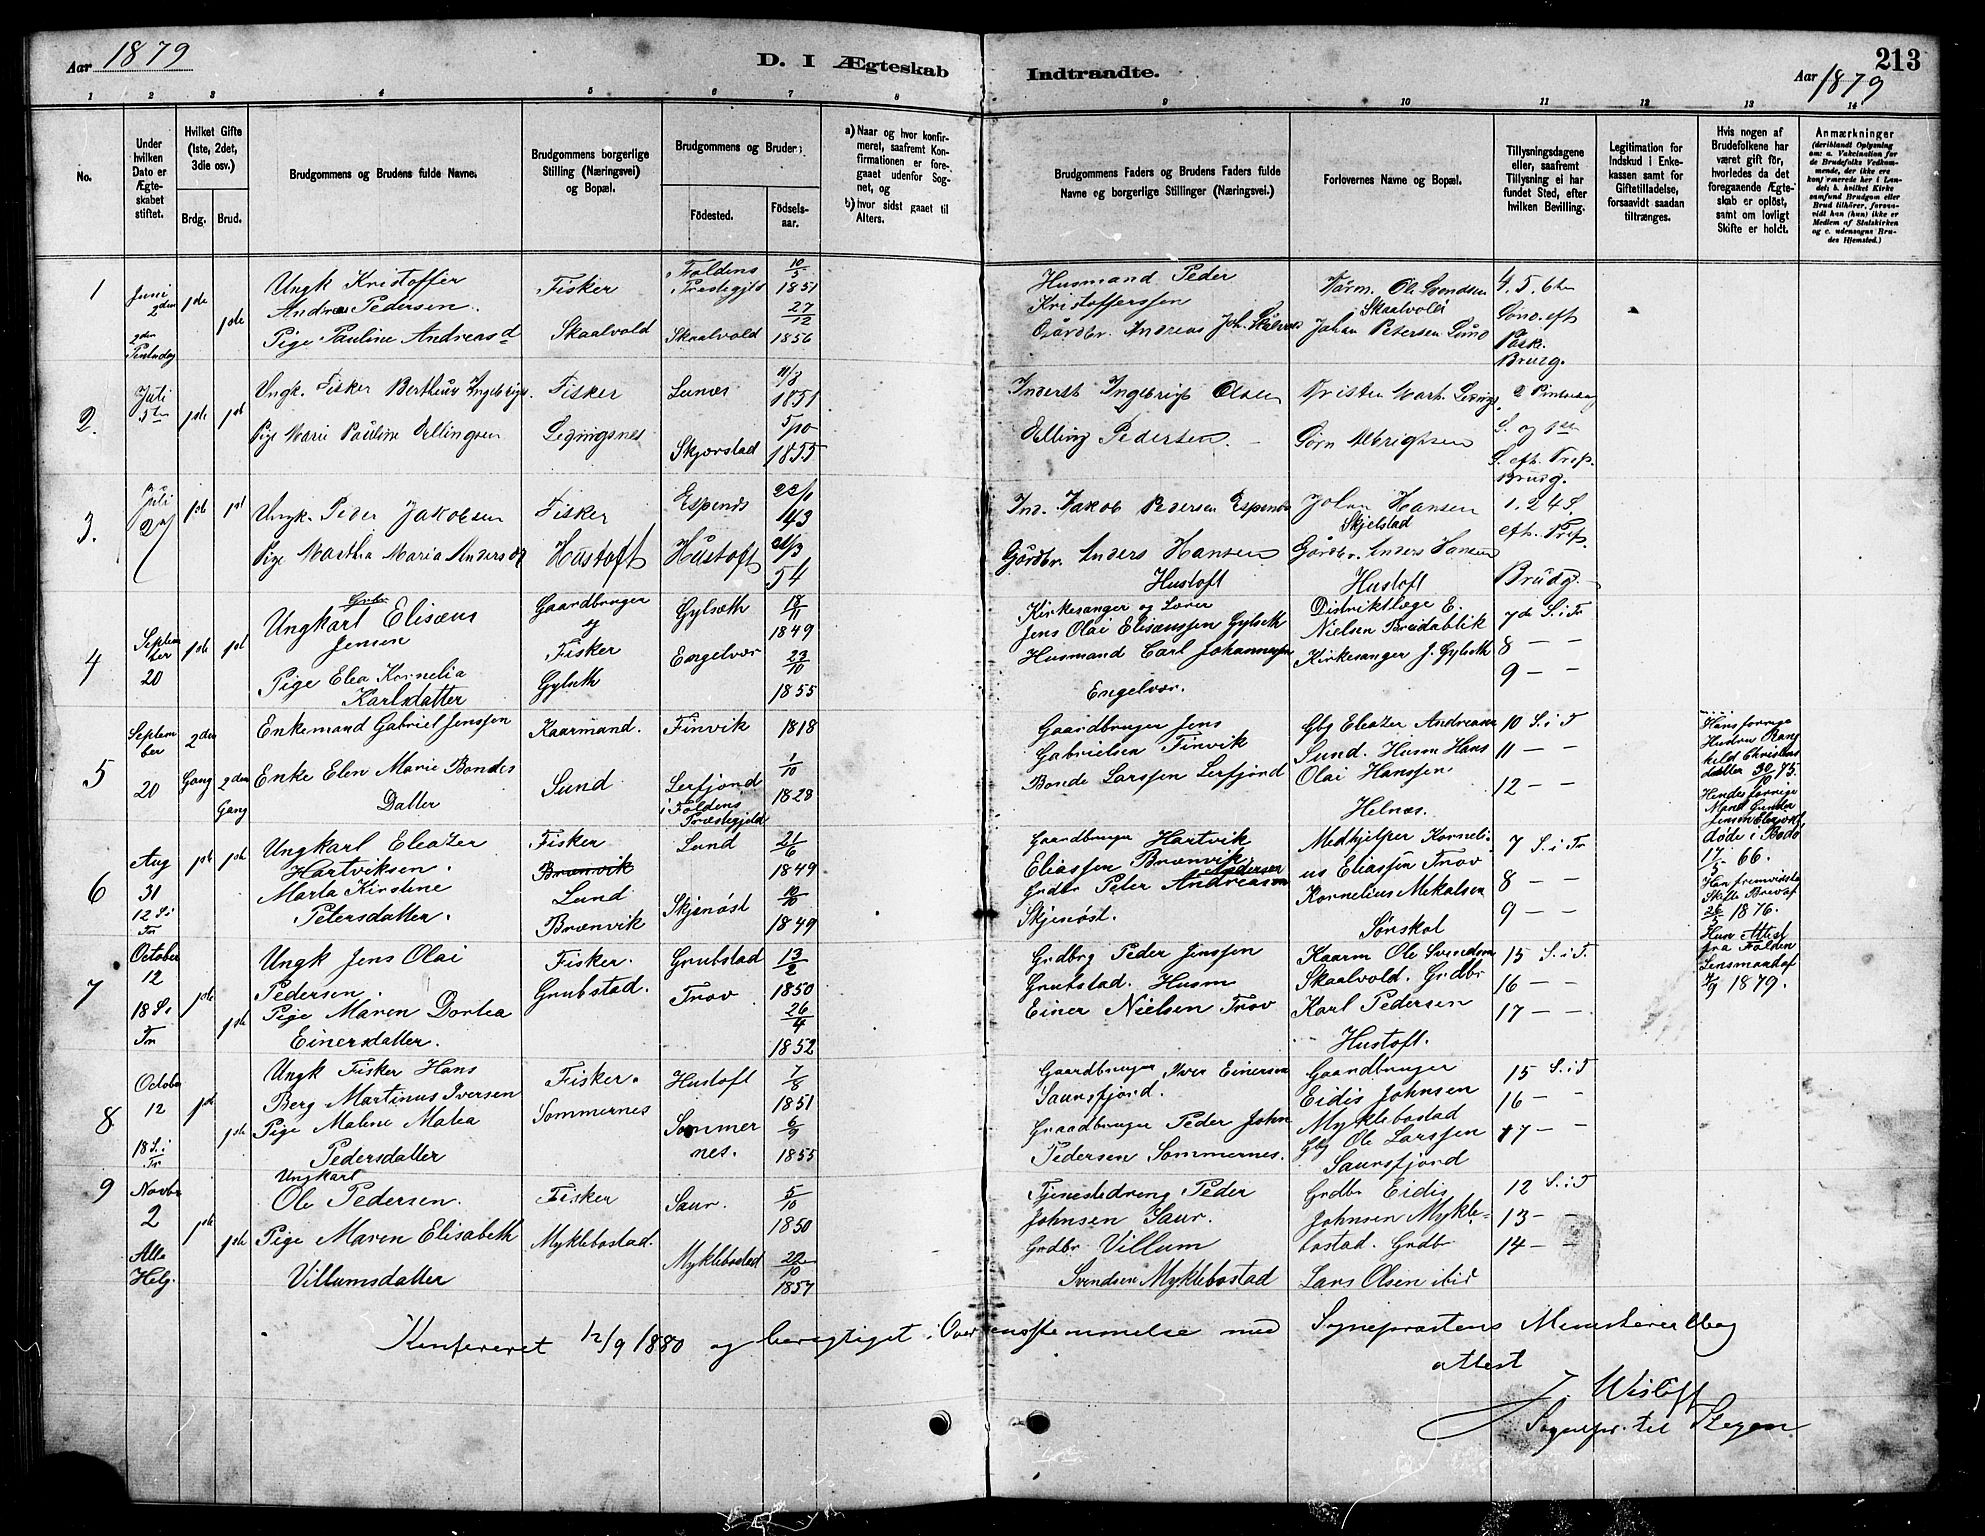 Aar 1879
D. I Ægteskab Indtraadte.
213
Aar 1879
1 2 3 4 5 6 7 8 9 10 11 12 13 14
No.
Under hvilken Dato er Ægteskabet stiftet.
Hvilket Gifte (1ste, 2det, 3die osv.)
Brdg. Brud.
Brudgommens og Brudens fulde Navne.
Brudgommens borgerlige Stilling (Næringsvei) og Bopæl.
Brudgommens og Brudens
Fødested. Fødselsaar.
a) Naar og hvor konfirmeret, saafremt Konfirmationen er foregaaet udenfor Sognet, og
b) hvor sidst gaaet til Alters.
Brudgommens Faders og Brudens Faders fulde Navne og borgerlige Stillinger (Næringsvei.)
Forlovernes Navne og Bopæl.
Tillysningsdagene eller, saafremt Tillysning ei har fundet Sted, efter hvilken Bevilling.
Legitimation for Indskud i Enkekassen samt for Giftetilladelse, forsaavidt saadan tiltrænges.
Hvis nogen af Brudefolkene har været gift før, hvorledes da det foregaaende Ægteskab er opløst, samt om lovligt Skifte er holdt.
Anmærkninger (deriblandt Oplysning om: a. Vakcination for de Brudefolks Vedkommende, der ikke ere konfirmerede her i Landet; b. hvilket Kirkesamfund Brudgom eller Brud tilhører, forsaavidt han (hun) ikke er Medlem af Statskirken og c. udensogns Brudes Hjemsted.)
1
Juni 2den
2den Pintsdag
1ste 1ste
Ungk Kristoffer
Andreas Pedersen.
Pige Pauline Andreasd
Fisker
Skaalvold
Foldens Præstegjeld 10/5 1851
Skaalvold 27/12 1856
Husmand Peder
Kristofferssen
Gårdbr. Andreas Joh.
Ole Svendsen
Skaalvold
Johan Petersen Lund
4. 5. 6te
Sønd. eft
Paask.
Brudg.
2.
Juli 5te
1ste 1ste
Ungk. Fisker Bertheus Ingebrigs.
Pige Marie Pauline Ellingsen
Fisker
Legningsnes
Lunæs 11/8 1851
Skjerstad 5/10 1855
Inderst Ingebrigt Olsen
Elling Pedersen.
Kristen Mart.
Sørn Albrigtsen
S. og 1ste
S. eft. Tref.
Brudg.
3.
Juli
1ste 1ste
Ungk. Peder Jakobsen
Pige Martha Maria Andersd
Fisker
Hustoft
Espenes 22/1 43
Hustoft 21/3 54
Ind. Jakob Pedersen Espenes
Gårdbr. Anders Hansen
Hustoft
Johan Hansen
Skjelstad
Gårdbr. Anders Hansen
Hustoft
1. 2 4 S.
eft. Tref.
Brudg.
4
September 20
1ste 1ste
Ungkarl Elisæus
Jensen
Pige Elea Kornelia
Karlsdatter
Gaardbruger
og
Fisker
Gylseth
Gylseth 18/11 1849
Engelvær 23/10 1855
Kirkesanger og Lærer
Jens Olai Elisæussen Gylseth
Husmand Carl Johannesen
Engelvær.
Distriktlæge E.
Nielsen Breidablik
Kirkesanger J. Gylseth
7de S. i Tr
8 — —
9 — —
5
September 20
2den Gang 2den Gang
Enkemand Gabriel Jenssen
Enke Elen Marie Bondes
Datter
Kaarmand.
Sund
Finvik 1818
Lerfjord i Foldens Præstegjeld 1/10 1828
Gaardbruger Jens
Gabrielsen Finvik
Bonde Larssen Lerfjord
Gbg Eleazer Andreasen
Sund. Husm Hans
Olai Hanssen
Helnæs.
10 S. i T
11 — —
12 — —
Hans forrige
Hustru Rang
hild Christens
datter 30/10 75.
Hendes forrige
Mand Gunder
Jensen
døde i Bodø
17/5 66.
Han fremvidste
Skifte Brev af
26/5 1876.
Hun Attest
fra Folden
Lensmand af
4/9 1879.
6
Aug 31
12 S. i Tr
1ste 1ste
Ungkarl Eleazer
Hartviksen.
Marta Kirstine
Petersdatter.
Fisker
Brænvik
Lund
Brænvik
Lund 21/6 1849
Skjenøst 10/10 1849
Gaardbruger Hartvik
Eliassen Brænvik.
Pedersen
Grdbr Peter Andreasen
Skjenøst.
Medhjelper Korneli-
us Eliassen Trov
Kornelius Mekalsen
Sørskot
7 S. i Tr
8 — —
9 — —
7
October 12
18 S. i Tr
1ste 1ste
Ungk Jens Olai
Pedersen.
Pige Maren Dortea
Einersdatter.
Fisker.
Grubstad.
Grubstad 13/2 1850
Trov 26/4 1852
Grdbrg Peder Jenssen
Grubstad. Husm
Einer Nielsen Trov
Kaarm Ole Svendsen
Skaalvold. Grdbr
Karl Pedersen
Hustoft.
15 S. i T.
16 — —
17 — —
8
October 12
18 S. i Tr
1ste 1ste
Ungk Fisker Hans
Berg Martinus Iversen
Pige Malene Matea
Pedersdatter
Fisker.
Sommernes
Hustoft 7/8 1851
Sommernes. 6/9 1855
Gaardbruger Iver Einersen
Saursfjord.
Graadbruger Peder John
Pedersen Sommernes.
Gaardbruger
Eidis Johnsen
Myklebostad
Gbg Ole Larssen
Saursfjord
15 S. i T
16 — —
17 — —
9
Novbr 2
Alle Helg.
1ste 1ste
Ungkarl
Ole Pedersen.
Pige Maren Elisabeth
Villumsdatter
Fisker
Myklebostad.
Saur. 5/10 1850
Myklebostad 22/10 1857
Tjenestedreng Peder
Johnsen Saur.
Grdbr Villum
Svendsen Myklebostad
Grdbr Eidis
Johnsen Mykle-
bostad. Grdbr
Lars Olsen ibid
12 S. i T
13 — —
14 — —
Konfereret 12/9 1880 og berigtiget i Overensstemmelse med Sogneprestens Ministerialbog
attest
J. Wisløff
Sognepr. til Stegen